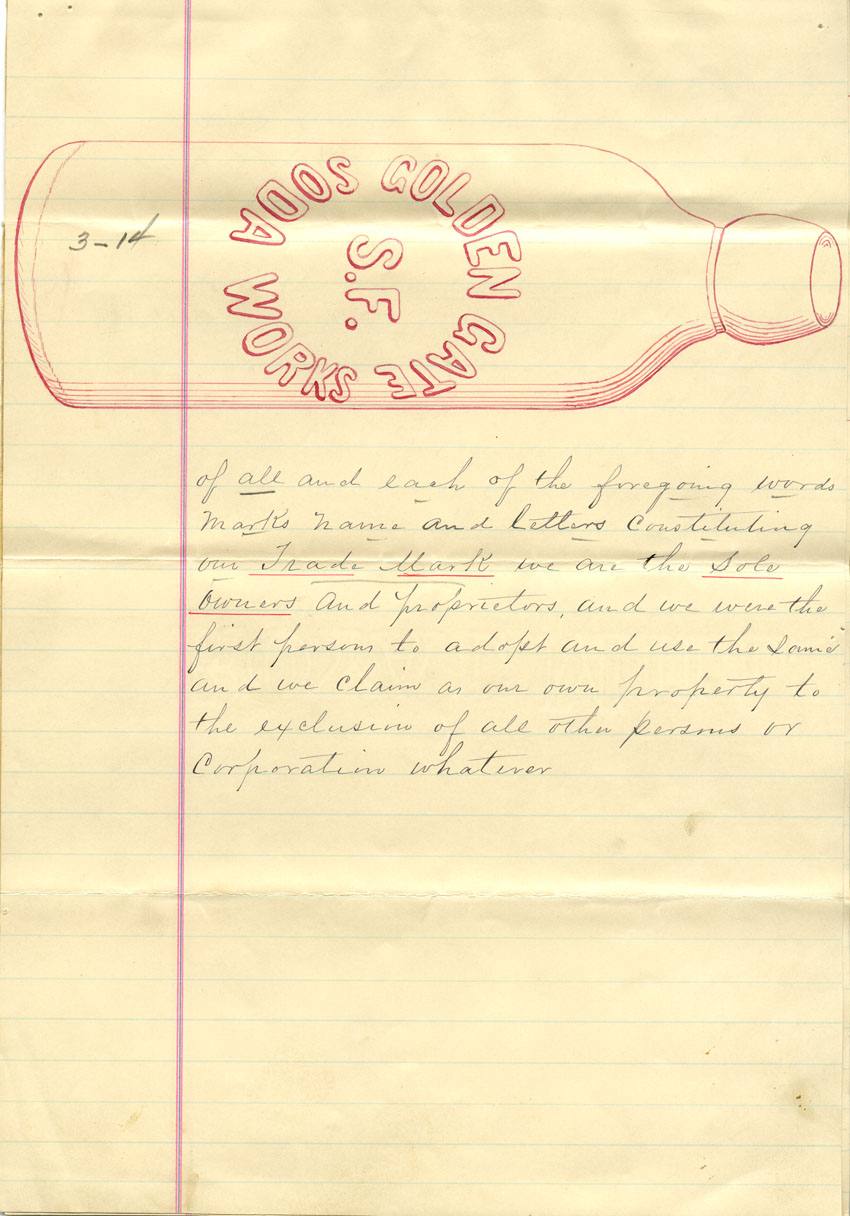 GOLDEN GATE
SODA WORKS
S.F.
3-14
of all and each of the foregoing words
Marks name and letters Constituting
our Trade Mark we are the Sole
Owners and proprietors, and we were the
first persons to adopt and use the same
and we claim as our own property to
the exclusion of all other persons or
Corporation whatever